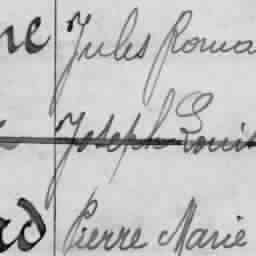 ne Jules Roma
Joseph Louis
rd Pierre Marie